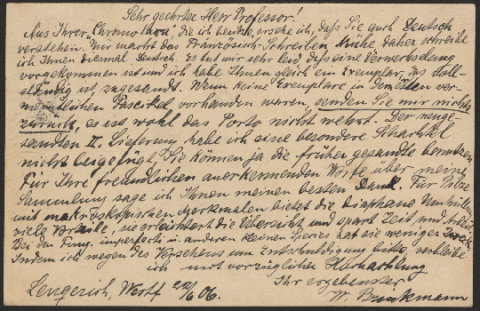 Sehr geehrter Herr Professor!
Aus Ihrer „Chromotaxia", die ich besitze, ersehe ich, daß Sie auch Deutsch
verstehen. Mir macht das Französisch-Schreiben Mühe, daher schreibe
ich Ihnen diesmal Deutsch. Es tut mir sehr leid, daß eine Verwechslung
vorgekommen ist und ich habe Ihnen gleich ein Exemplar, das voll-
ständig ist, zugesandt. Wenn keine Exemplare in dem
Fascikel vorhanden waren, senden Sie mir nichts
zurück, es ist wohl das Porto nicht wert. Der neuge-
sandten II. Lieferung habe ich eine besondere Schachtel
nicht beigefügt, Sie können ja die früher gesandte benutzen.
Für Ihre freundlichen anerkennenden Worte über meine
Sammlung sage ich Ihnen meinen besten Dank. Für Pilze
mit makroskopischen Merkmalen bietet die Diaphane Umhüllung
viele Vorteile, sie erleichtert die Übersicht und spart Zeit und Arbeit.
Bei den Fung. imperfecti u. anderen kleinen Species hat sie weniger Zweck.
Indem ich wegen des Versehens um Entschuldigung bitte, verbleibe
ich mit vorzüglicher Hochachtung
Ihr ergebenster
Lengerich, Westf 06. W. Brinkmann